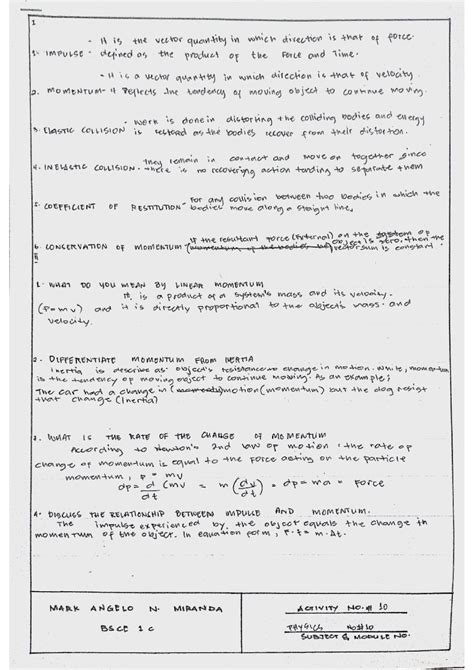 1
- It is the vector quantity in which direction is that of force.
1. IMPULSE - defined as the product of the Force and Time.
- It is a vector quantity in which direction is that of velocity
2. MOMENTUM - it Reflects the tendency of moving object to continue moving.
- Work is done in distorting the colliding bodies and energy
3. ELASTIC COLLISION is restored as the bodies recover from their distortion.
- they remain in contact and move on together since
4. INELASTIC COLLISION. - there is no recovering action tending to separate them
- For any collision between two bodies in which the
5. COEFFICIENT OF RESTITUTION - bodies move along a straight line,
If the resultant force (External) on the system of
6. CONSERVATION OF MOMENTUM object is zero, then the
vector sum is constant
II
1. WHAT DO YOU MEAN BY LINEAR MOMENTUM
It is a product of a system's mass and its velocity.
(P = mv) and it is directly proportional to the object's mass and
velocity.
2. DIFFERENTIATE MOMENTUM FROM INERTIA
Inertia is describe as object's resistance to change in motion. While, momentum
is the tendency of moving object to continue moving. As an example;
The car had a change in motion (momentum) but the dog resist
that change (Inertia)
3. WHAT IS THE RATE OF THE CHANGE OF MOMENTUM
According to Newton's 2nd law of motion, the rate of
change of momentum is equal to the force acting on the particle
momentum, P = mv
dp = d/dt (mv = m (dv/dt) = dp = ma = Force
4. DISCUSS THE RELATIONSHIP BETWEEN IMPULSE AND MOMENTUM.
The impulse experienced by the object equals the change in
momentum of the object. In equation form, F·t = m·Δt.
MARK ANGELO N. MIRANDA
BSCE 1C
ACTIVITY NO.# 10
PHYSICS NO#10
SUBJECT & MODULE NO.